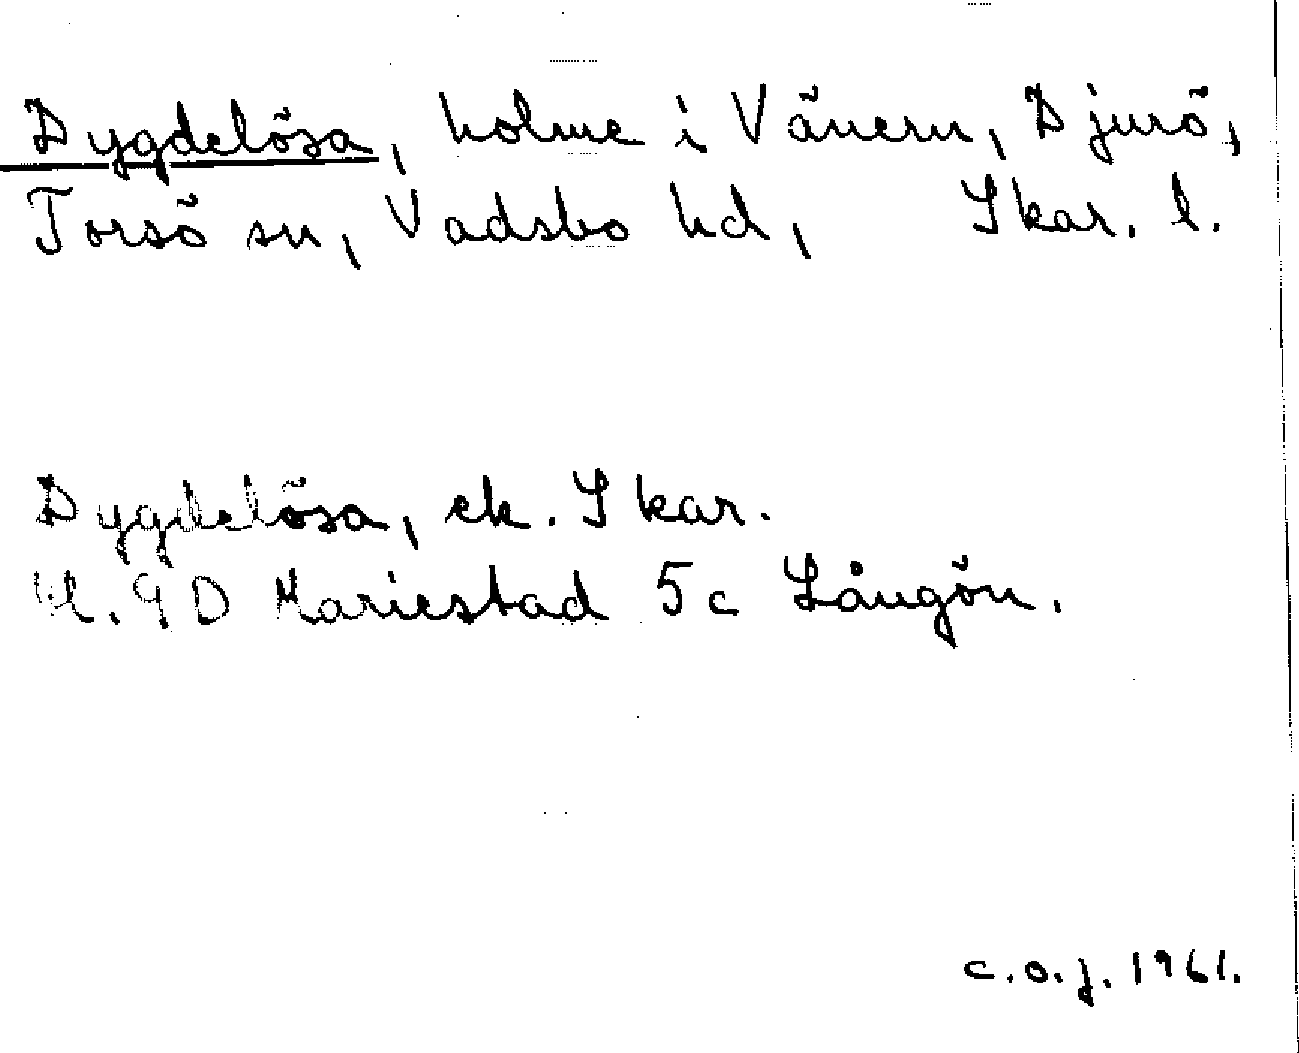 Dygdelösa, holme i Vänern, Djurö,
Torsö sn, Vadsbo hd, Skar. l.
Dygdelösa, ek. Skar.
l. 9D Mariestad 5c Långön.
c.o.j. 1961.